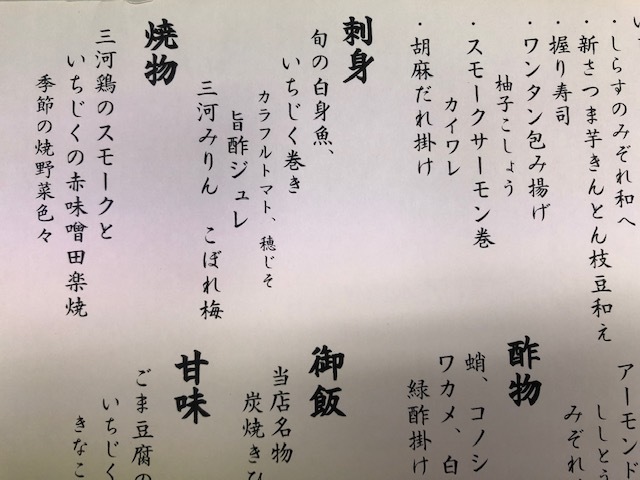 ・しらすのみぞれ和へ
・新さつま芋きんとん枝豆和え
・握り寿司
・ワンタン包み揚げ
柚子こしょう
・スモークサーモン巻
カイワレ
・胡麻だれ掛け
刺身
旬の白身魚、
いちじく巻き
カラフルトマト、穂じそ
旨酢ジュレ
三河みりん こぼれ梅
焼物
三河鶏のスモークと
いちじくの赤味噌田楽焼
季節の焼野菜色々
アーモンド
ししとう
みぞれ
酢物
蛸、コノシ
ワカメ、白
緑酢掛け
御飯
当店名物
炭焼きひ
甘味
ごま豆腐の
いちじく
きなこ